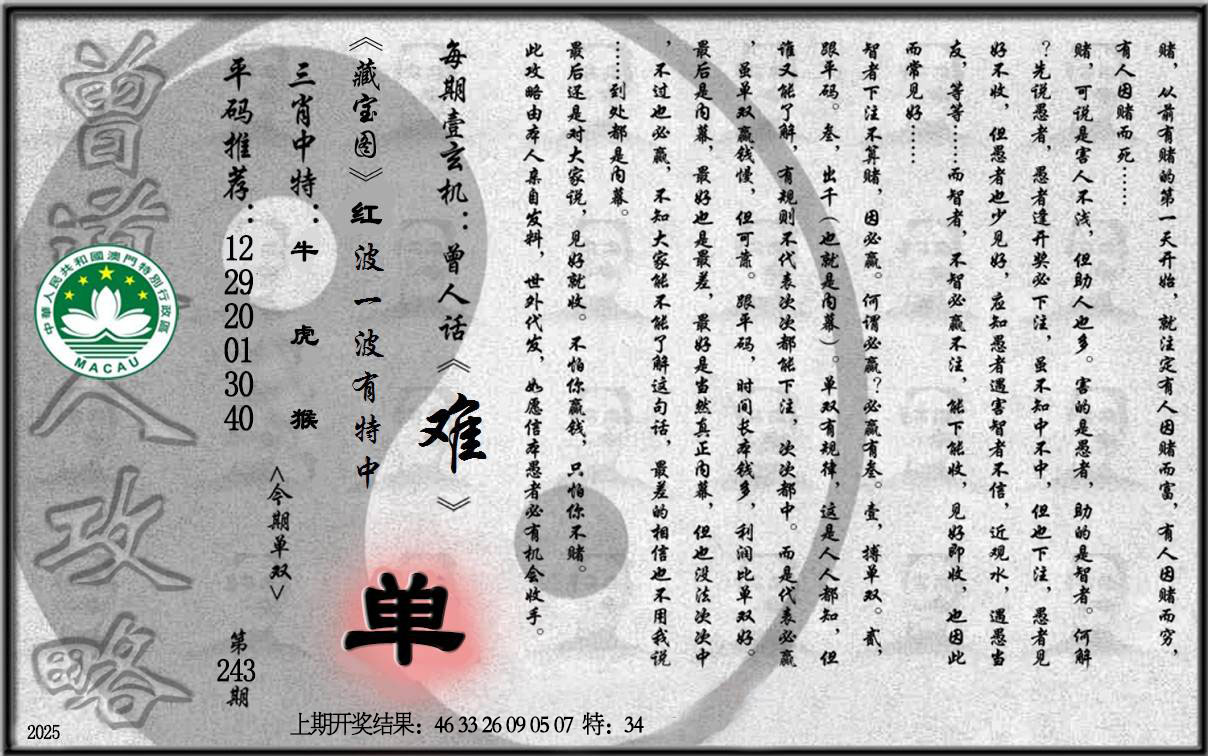 赌，从前有赌的第一天开始，就注定有人因赌而富，有人因赌而穷，
有人因赌而死……
赌，可说是害人不浅，但助人也多。害的是愚者，助的是智者。何解
？先说愚者，愚者逢开奖必下注，虽不知中不中，但也下注，愚者见
好不收，但愚者也少见好，应知愚者遇害智者不信，近观水，遇愚当
友，等等……而智者，不智必赢不注，能下能收，见好即收，也因此
而常见好……
智者下注不算赌，因必赢。何谓必赢？必赢有叁。壹，搏单双。贰，
跟平码。叁，出千（也就是内幕）。单双有规律，这是人人都知，但
谁又能了解，有规则不代表次次都能下注，次次都中。而是代表必赢
，虽单双赢钱慢，但可靠。跟平码，时间长本钱多，利润比单双好。
最后是内幕，最好也是最差，最好是当然真正内幕，但也没法次次中
，不过也必赢，不知大家能不能了解这句话，最差的相信也不用我说
……到处都是内幕。
最后还是对大家说，见好就收。不怕你赢钱，只怕你不赌。
此攻略由本人亲自发料，世外代发，如愿信本愚者必有机会收手。
每期壹玄机：曾人话《难》
《藏宝图》红波一波有特中
单
三肖中特：牛虎猴
<今期单双>
平码推荐：
12
29
20
01
30
40
第
243
期
曾道人攻略
中華人民共和國澳門特別行政區
MACAU
2025
上期开奖结果：46 33 26 09 05 07 特：34